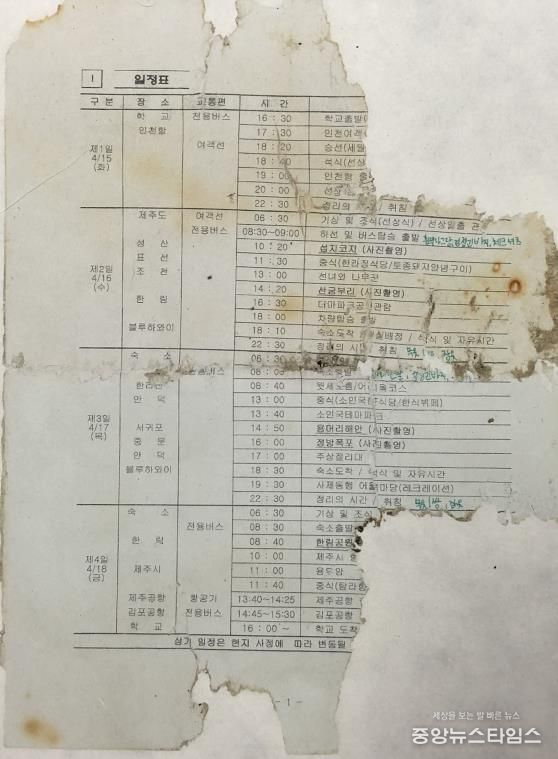 I 일정표
구 분 장 소 교통편 시 간
제1일 4/15 (화)
학 교 전용버스 16 : 30 학교출발
인천항 17 : 30 인천여객
여객선 18 : 20 승선(세월
18 : 40 석식(선상
19 : 00 인천항 출
20 : 00 선상
22 : 30 정리의 / 취침
제2일 4/16 (수)
제주도 여객선 06 : 30 기상 및 조식(선상식) / 선상일출 관
전용버스 08:30~09:00 하선 및 버스탑승 출발
성 산 10 : 20 섭지코지 (사진촬영)
표 선 11 : 30 중식(한라정식당/토종돼지양념구이)
조 천 13 : 00 선녀와 나무꾼
14 : 20 산굼부리 (사진촬영)
한 림 16 : 30 더마파크공연관람
18 : 00 차량탑승 출발
블루하와이 18 : 10 숙소도착 / 실배정 / 석식 및 자유시간
22 : 30 정리의 시간 / 취침
제3일 4/17 (목)
숙 소 06 : 30
08 : 00 숙소출발
한라산 08 : 40 윗세오름/어리목코스
안 덕 13 : 00 중식(소인국 식당/한식뷔페)
13 : 40 소인국테마파크
서귀포 14 : 50 용머리해안 (사진촬영)
중 문 16 : 00 정방폭포 (사진촬영)
안 덕 17 : 00 주상절리대
블루하와이 18 : 30 숙소도착 / 석식 및 자유시간
19 : 30 사제동행 어울 마당(레크레이션)
22 : 30 정리의 시간 / 취침
제4일 4/18 (금)
숙 소 06 : 30 기상 및 조식
전용버스 08 : 30 숙소출발
한 림 08 : 40 한림공원
10 : 00 제주시
제주시 11 : 00 용두암
11 : 40 중식(탐라
제주공항 항공기 13:40~14:25 제주공항
김포공항 전용버스 14:45~15:30 김포공항
학 교 16 : 00 ~ 학교 도착
상기 일정은 현지 사정에 따라 변동될
- 1 -
세상을 보는 발 빠른 뉴스
중앙뉴스타임스